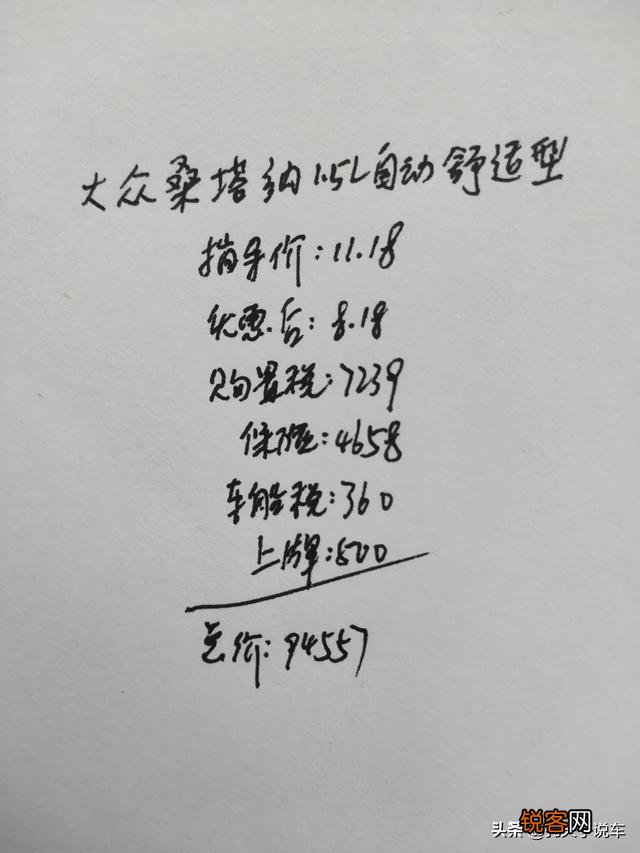 大众桑塔纳1.5L自动舒适型
指导价:11.18
优惠后:8.18
购置税:7239
保险:4658
车船税:360
上牌:500
总价:94557
头条
说车
锐客网